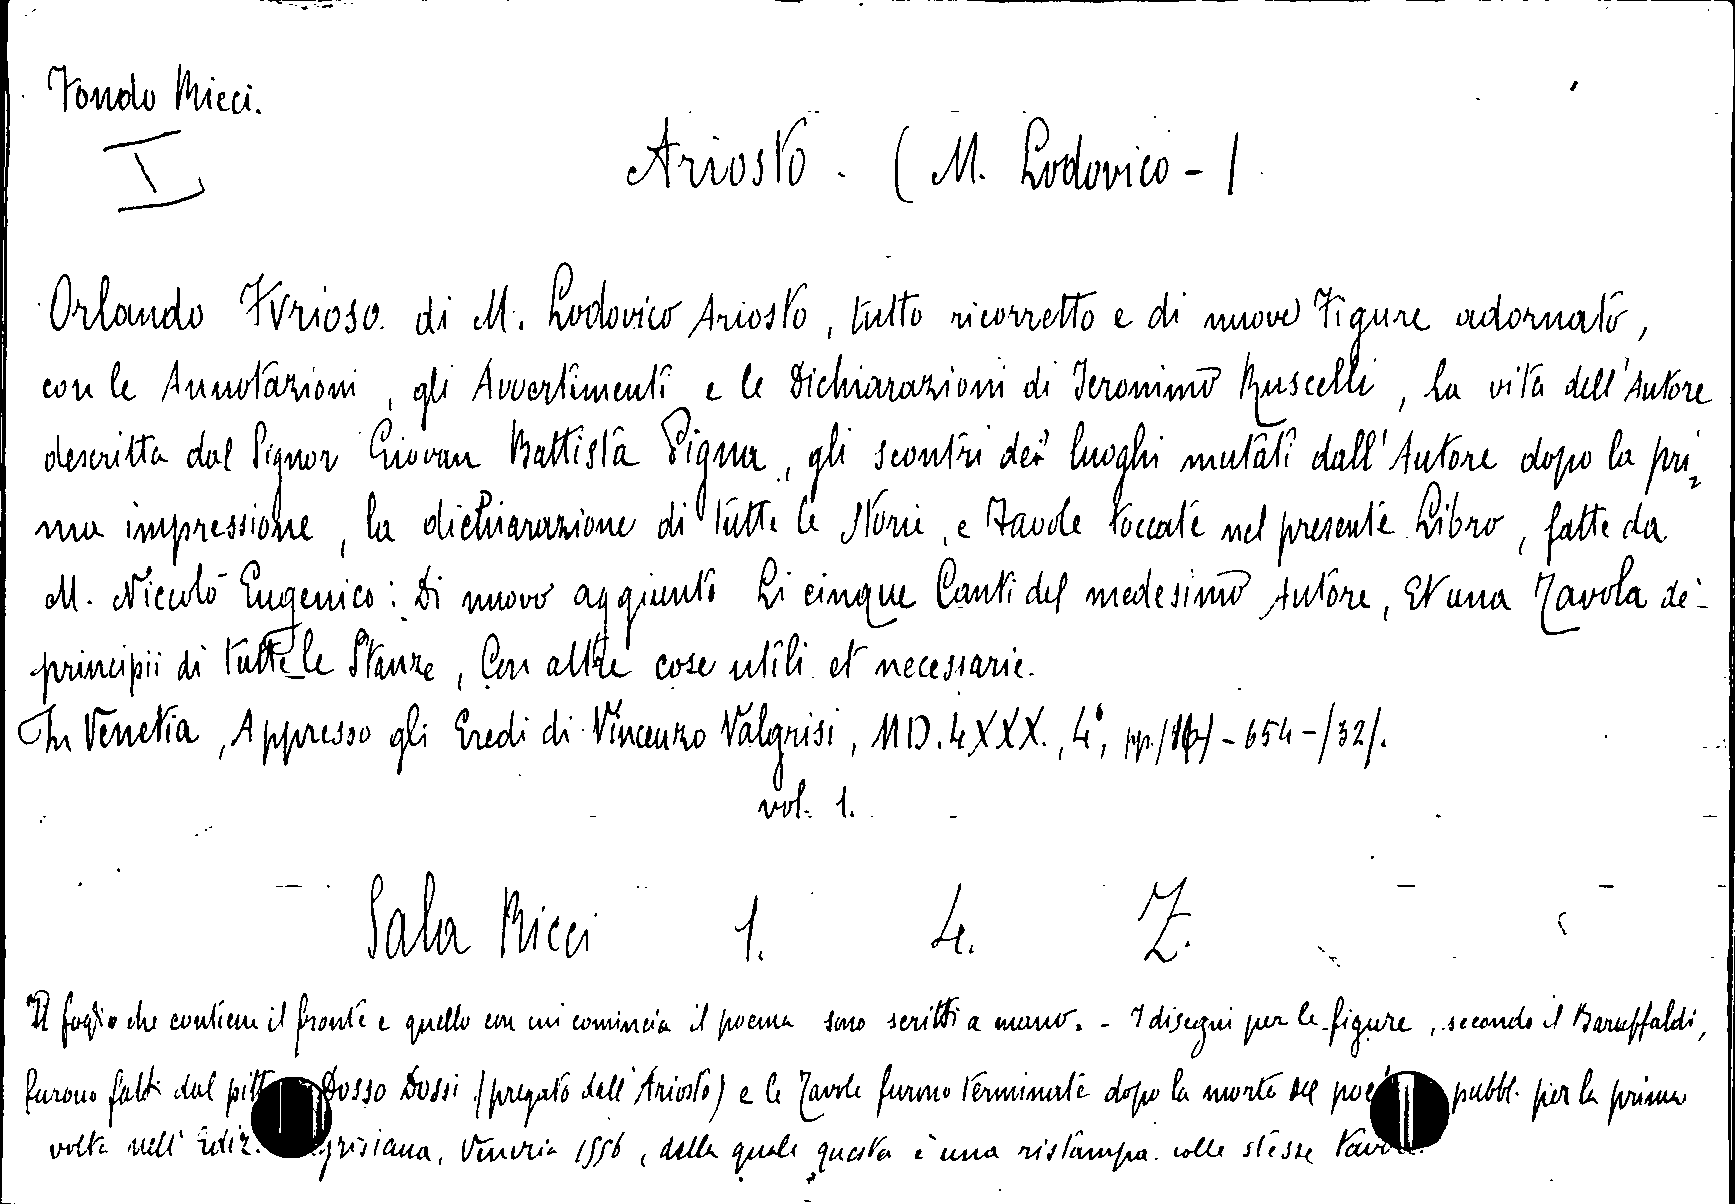 Fondo Ricci.
I
Ariosto. (M. Lodovico-)
Orlando Fvrioso. di M. Lodovico Ariosto, tutto ricorretto e di nuove Figure adornato,
con le Annotazioni, gli Avvertimenti e le Dichiarazioni di Ieronimo Ruscelli, La vita dell'Autore
descritta dal Signor Giovan Battista Pigna, gli scontri dei luoghi mutati dall'Autore dopo la pri-
ma impressione, la dichiarazione di tutte le Storie, e Favole toccate nel presente Libro, fatte da
M. Niccolò Eugenico: Di nuovo aggiunto Li cinque Canti del medesimo Autore, Et una Tavola de'
principii di tutte le Stanze, Con altre cose utili et necessarie.
In Venetia, Appresso gli Eredi di Vincenzo Valgrisi, MD.LXXX., 4°, pp./16/-654-/32/.
vol. 1.
Sala Ricci 1. 4. Z.
Il foglio che contiene il fronte e quello con cui comincia il poema sono scritti a mano. - I disegni per le figure, secondo il Baruffaldi,
furono fatti dal Dosso Dossi (pregato dall'Ariosto) e le Tavole furono terminate dopo la morte del pubbl. per la prima
volta nell'Ediz. Venezia 1556, della quale questa è una ristampa colle stesse